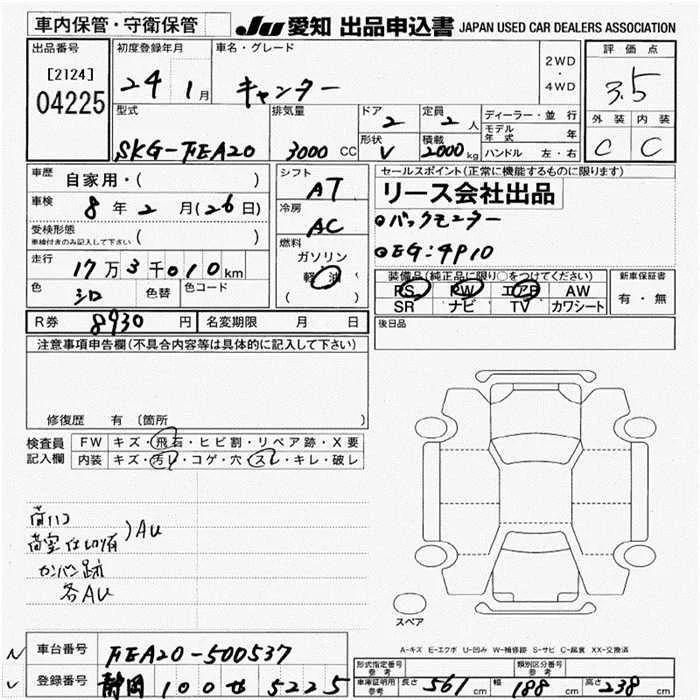 車内保管・守衛保管
JU 愛知 出品申込書 JAPAN USED CAR DEALERS ASSOCIATION
出品番号 [2124] 04225
初度登録年月 24 1月
車名・グレード キャンター
2WD ・ 4WD
評価点 3.5
外装 内装
C C
型式 SKG-FEA20
排気量 3000 CC
ドア 2
定員 2 人
形状 V
積載 2000 kg
ディーラー・並行
モデル年式 年
ハンドル 左・右
車歴 自家用・( )
車検 8年2月(26日)
受検形態 車検付きのみ記入して下さい ( )
走行 17万3千010km
色 シロ 色替 色コード
シフト AT
冷房 AC
燃料 ガソリン 軽油 ( )
セールスポイント(正常に機能するものに限ります)
リース会社出品
バックモニター
EG:4P10
装備品(純正品に限り○をつけてください)
PS PW エアB AW
SR ナビ TV カワシート
新車保証書
有・無
R券 8930円 名変期限 月 日
後日品
注意事項申告欄(不具合内容等は具体的に記入して下さい)
修復歴 有 〔箇所 〕
検査員記入欄 FW キズ・飛石・ヒビ割・リペア跡・X要
内装 キズ・汚レ・コゲ・穴・スレ・キレ・破レ
荷ハコ
荷室仕切有 )AU
カンバン跡
各AU
スペア
A-キズ E-エクボ U-凹み W-補修跡 S-サビ C-腐食 XX-交換済
車台番号 FEA20-500537
登録番号 静岡 100 せ 5225
形式指定番号 参考
類別区分番号 参考
車庫証明用 参考 長さ 561cm 幅 188cm 高さ 238cm